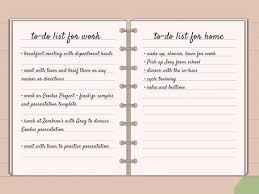 to-do list for work
- breakfast meeting with department heads
- meet with team and brief them on any
memos or directives
- work on Exodus Project - finalize sampler
and presentation template
- lunch at Zambrano's with Greg to discuss
Exodus presentation
- meet with team to practice presentation
to-do list for home
- wake up, shower, leave for work
- Pick up Joey from school
- dinner with the in-laws
- cycle training
- notes and bedtime